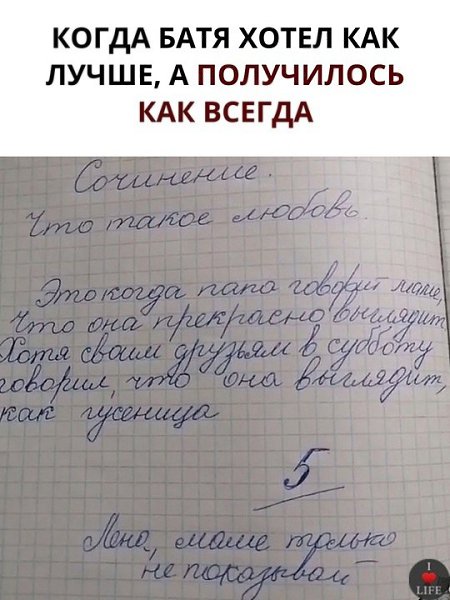 КОГДА БАТЯ ХОТЕЛ КАК
ЛУЧШЕ, А ПОЛУЧИЛОСЬ
КАК ВСЕГДА
Сочинение.
Что такое любовь.
Это когда папа говорит маме,
что она прекрасно выглядит
Хотя своим друзьям в субботу
говорил, что она выглядит,
как гусеница
5
Лена, маме только
не показывай
I
LIFE